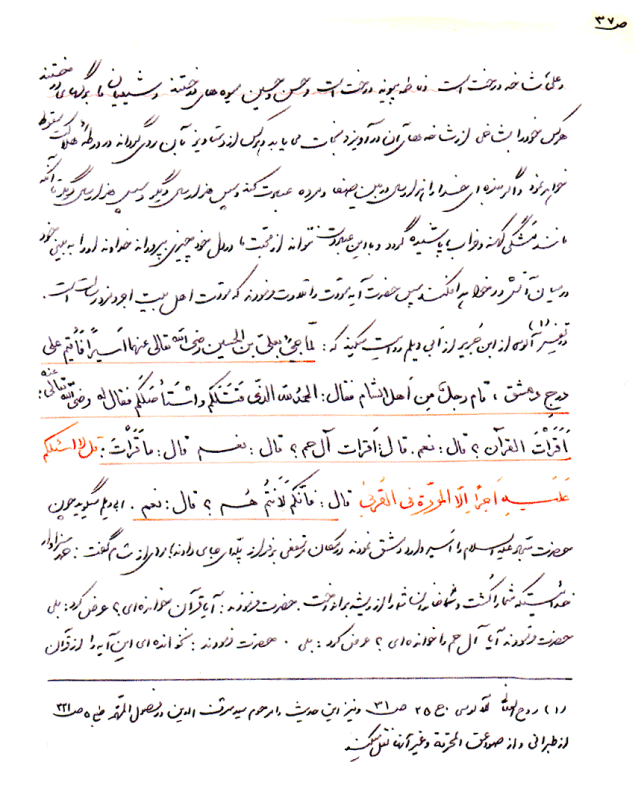 ص ۳۷
و علی شاخه درخت است و فاطمه پیوند درخت است و حسن و حسین میوه های درختند و شیعیان ما برگهای درختند
هر کس خود را به شاخی از شاخه های آن درآویزد نجات می یابد و هر کس از دستاویز به آن روی گرداند در ورطهٔ هلاکت سقوط
خواهد نمود و اگر بنده ای خدا را هزار سال در بین صفا و مروه عبادت کند و سپس هزار سال دیگر و سپس هزار سال دیگر تا آنکه
مانند مشکی کهنه و خراب پاشیده گردد و با این عبادت نتواند از محبت ما در دل خود چیزی بپروراند خداوند او را به بینی خود
در میان آتش در خواهد افکند سپس حضرت آیه مودت را تلاوت فرمودند که مودت اهل بیت اجر و مزد رسالت است .
در تفسیر (۱) آلوسی از ابن جریر از ابی دیلم روایت میکند که : لمّا جیءَ بعلی بن الحسین رضی الله تعالی عنهما اسیراً فاُقیم علی
درج دمشق ، قام رجلٌ مِن اهل الشام فقال : الحمدُ لله الذی قَتَلَکم و استأصَلکُم فقال له رضی الله تعالی عنه :
أَقَرَأتَ القرآن ؟ قال : نعم . قال : أقرأت آل حم ؟ قال : نعم قال : ماقَرَأتَ : قل لا اسئلکم
عَلَیهِ اَجراً اِلّا المَوَدّةَ فی القُربیٰ قال : فانّکم لَأنتُم هُم ؟ قال : نعم . ابی دیلم میگوید چون
حضرت سجاد علیه السلام را اسیر وارد دمشق نمودند در مکان مرتفعی بر فراز پله ای جای دادند ؛ مردی از شام گفت : حمد سزاوار
خدائیست که شما را کشت و شما خاندان شما را از ریشه برانداخت . حضرت فرمودند : آیا قرآن خوانده ای ؟ عرض کرد : بلی
حضرت فرمودند آیا آل حم را خوانده ای ؟ عرض کرد : بلی . حضرت فرمودند : نخوانده ای این آیه را از قرآن
(۱) روح المعانی للآلوسی ج ۲۵ ص ۳۱ و نیز این حدیث را مرحوم سید شرف الدین در فصول المهمه طبع ۵ ص ۲۲۱
از طبرانی و از صواعق المحرقة و غیر آنها نقل میکند